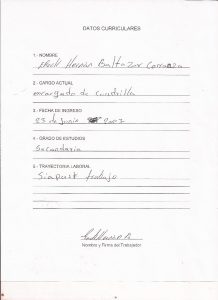 DATOS CURRICULARES
1.- NOMBRE
Hernán Baltazar Carranza
2.- CARGO ACTUAL
encargado de cuadrilla
3.- FECHA DE INGRESO
23 de Junio 2007
4.- GRADO DE ESTUDIOS
Secundaria
5.- TRAYECTORIA LABORAL
trabajo
Nombre y Firma del Trabajador